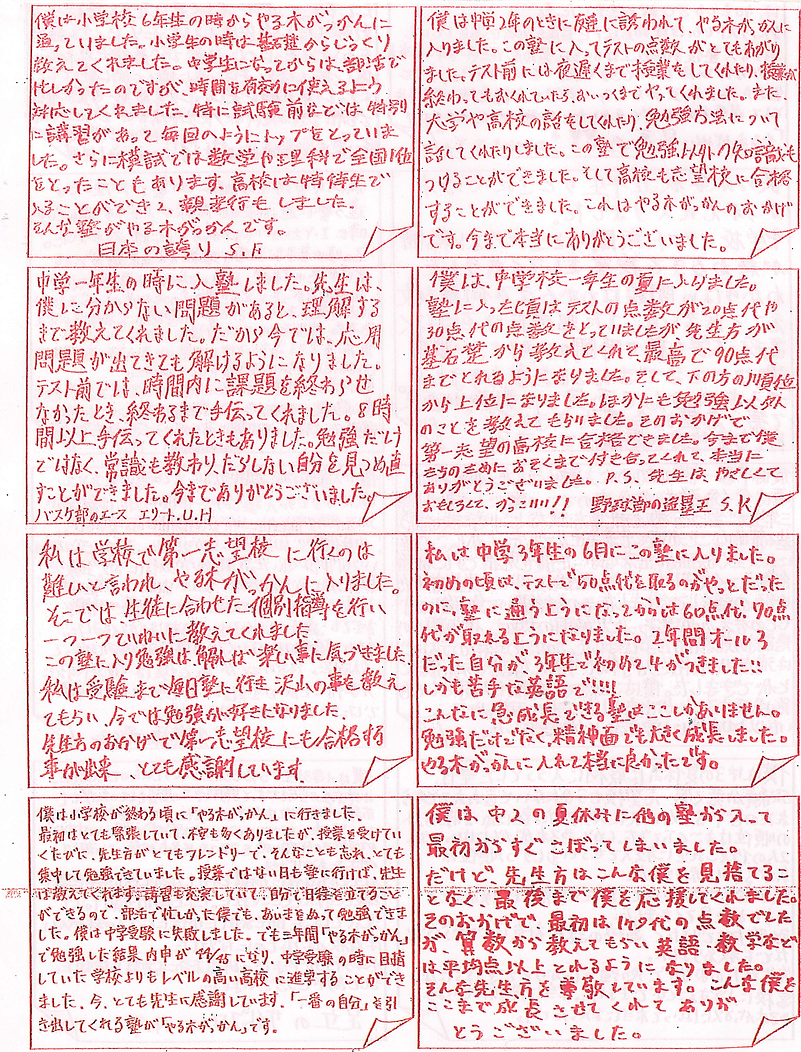 僕は小学校6年生の時からやる木がっかんに
通っていました。小学生の時は基礎からじっくり
教えてくれました。中学生になってからは、部活で
忙しかったのですが、時間を有効に使えるよう
対応してくれました。特に試験前などは特別
に講習があって毎回のようにトップをとっていま
した。さらに模試では数学や理科で全国1位
をとったこともあります。高校は特待生で
入ることができて、親孝行もしました。
そんな塾がやる木がっかんです。
日本の誇り S.F
僕は中学2年のときに友達に誘われて、やる木がっかんに
入りました。この塾に入ってテストの点数がとてもあがり
ました。テスト前には夜遅くまで授業をしてくれたり、授業が
終わってもおくれていたら、おいつくまでやってくれました。また、
大学や高校の話をしてくれたり、勉強方法について
話してくれたりしました。この塾で勉強以外の知識も
つけることができました。そして高校も志望校に合格
することができました。これはやる木がっかんのおかげ
です。今まで本当にありがとうございました。
中学一年生の時に入塾しました。先生は、
僕に分からない問題があると、理解する
まで教えてくれました。だから今では、応用
問題が出てきても解けるようになりました。
テスト前では、時間内に課題を終わらせ
なかったとき、終わるまで手伝ってくれました。8時
間以上手伝ってくれたときもありました。勉強だけ
ではなく、常識も教わり、だらしない自分を見つめ直
すことができました。今までありがとうございました。
バスケ部のエース エリート.U.H
僕は、中学校一年生の夏に入りました。
塾に入った頃はテストの点数が20点代や
30点代の点数をとっていましたが先生方が
基礎から教えてくれて、最高で90点代
までとれるようになりました。そして、下の方の順位
から上位になりました。ほかにも勉強以外
のことを教えてもらいました。そのおかげで
第一志望の高校に合格できました。今まで僕
たちのためにおそくまで付き合ってくれて、本当に
ありがとうございました。P.S.先生は、やさしくて
おもしろくて、かっこいい!! 野球部の盗塁王 S.K
私は学校で第一志望校に行くのは
難いと言われ、やる木がっかんに入りました。
そこでは、生徒に合わせた個別指導を行い
一つ一つていねいに教えてくれました
この塾に入り勉強は、解れば楽しい事に気づきました。
私は受験まで毎日塾に行き沢山の事を教え
てもらい、今では勉強が好きになりました。
先生方のおかげで第一志望校にも合格する
事が出来、とても感謝しています
私は中学3年生の6月にこの塾に入りました。
初めの頃は、テストで50点代を取るのがやっとだった
のに、塾に通うようになってからは60点代、70点
代が取れるようになりました。2年間オール3
だった自分が、3年生で初めて4がつきました!!
しかも苦手な英語で!!!!
こんなに急成長できる塾はここしかありません。
勉強だけでなく、精神面でも大きく成長しました。
やる木がっかんに入れて本当に良かったです。
僕は小学校が終わる頃に「やる木がっかん」に行きました。
最初はとても緊張していて、不安も多くありましたが、授業を受けてい
くたびに、先生方がとてもフレンドリーで、そんなことも忘れ、とても
集中して勉強できていました。授業ではない日も塾に行けば、先生
は教えてくれます。講習も充実していて、自分で日程を立てること
ができるので、部活で忙しかった僕でも、あいまをぬって勉強できま
した。僕は中学受験に失敗しました。でも三年間「やる木がっかん」
で勉強した結果、内申が44/45になり、中学受験の時に目指
していた学校よりもレベルの高い高校に進学することができ
ました。今、とても先生に感謝しています。「一番の自分」を引
き出してくれる塾が「やる木がっかん」です。
僕は、中2の夏休みに他の塾から入って
最初からずぐこばってしまいました。
だけど、先生方はこんな僕を見捨てるこ
となく、最後まで僕を応援してくれました。
そのおかげで、最初は1ケタ代の点数でした
が、算数から教えてもらい英語・数学など
は平均点以上とれるようになりました。
そんな先生方を尊敬しています。こんな僕を
ここまで成長させてくれてありが
とうございました。